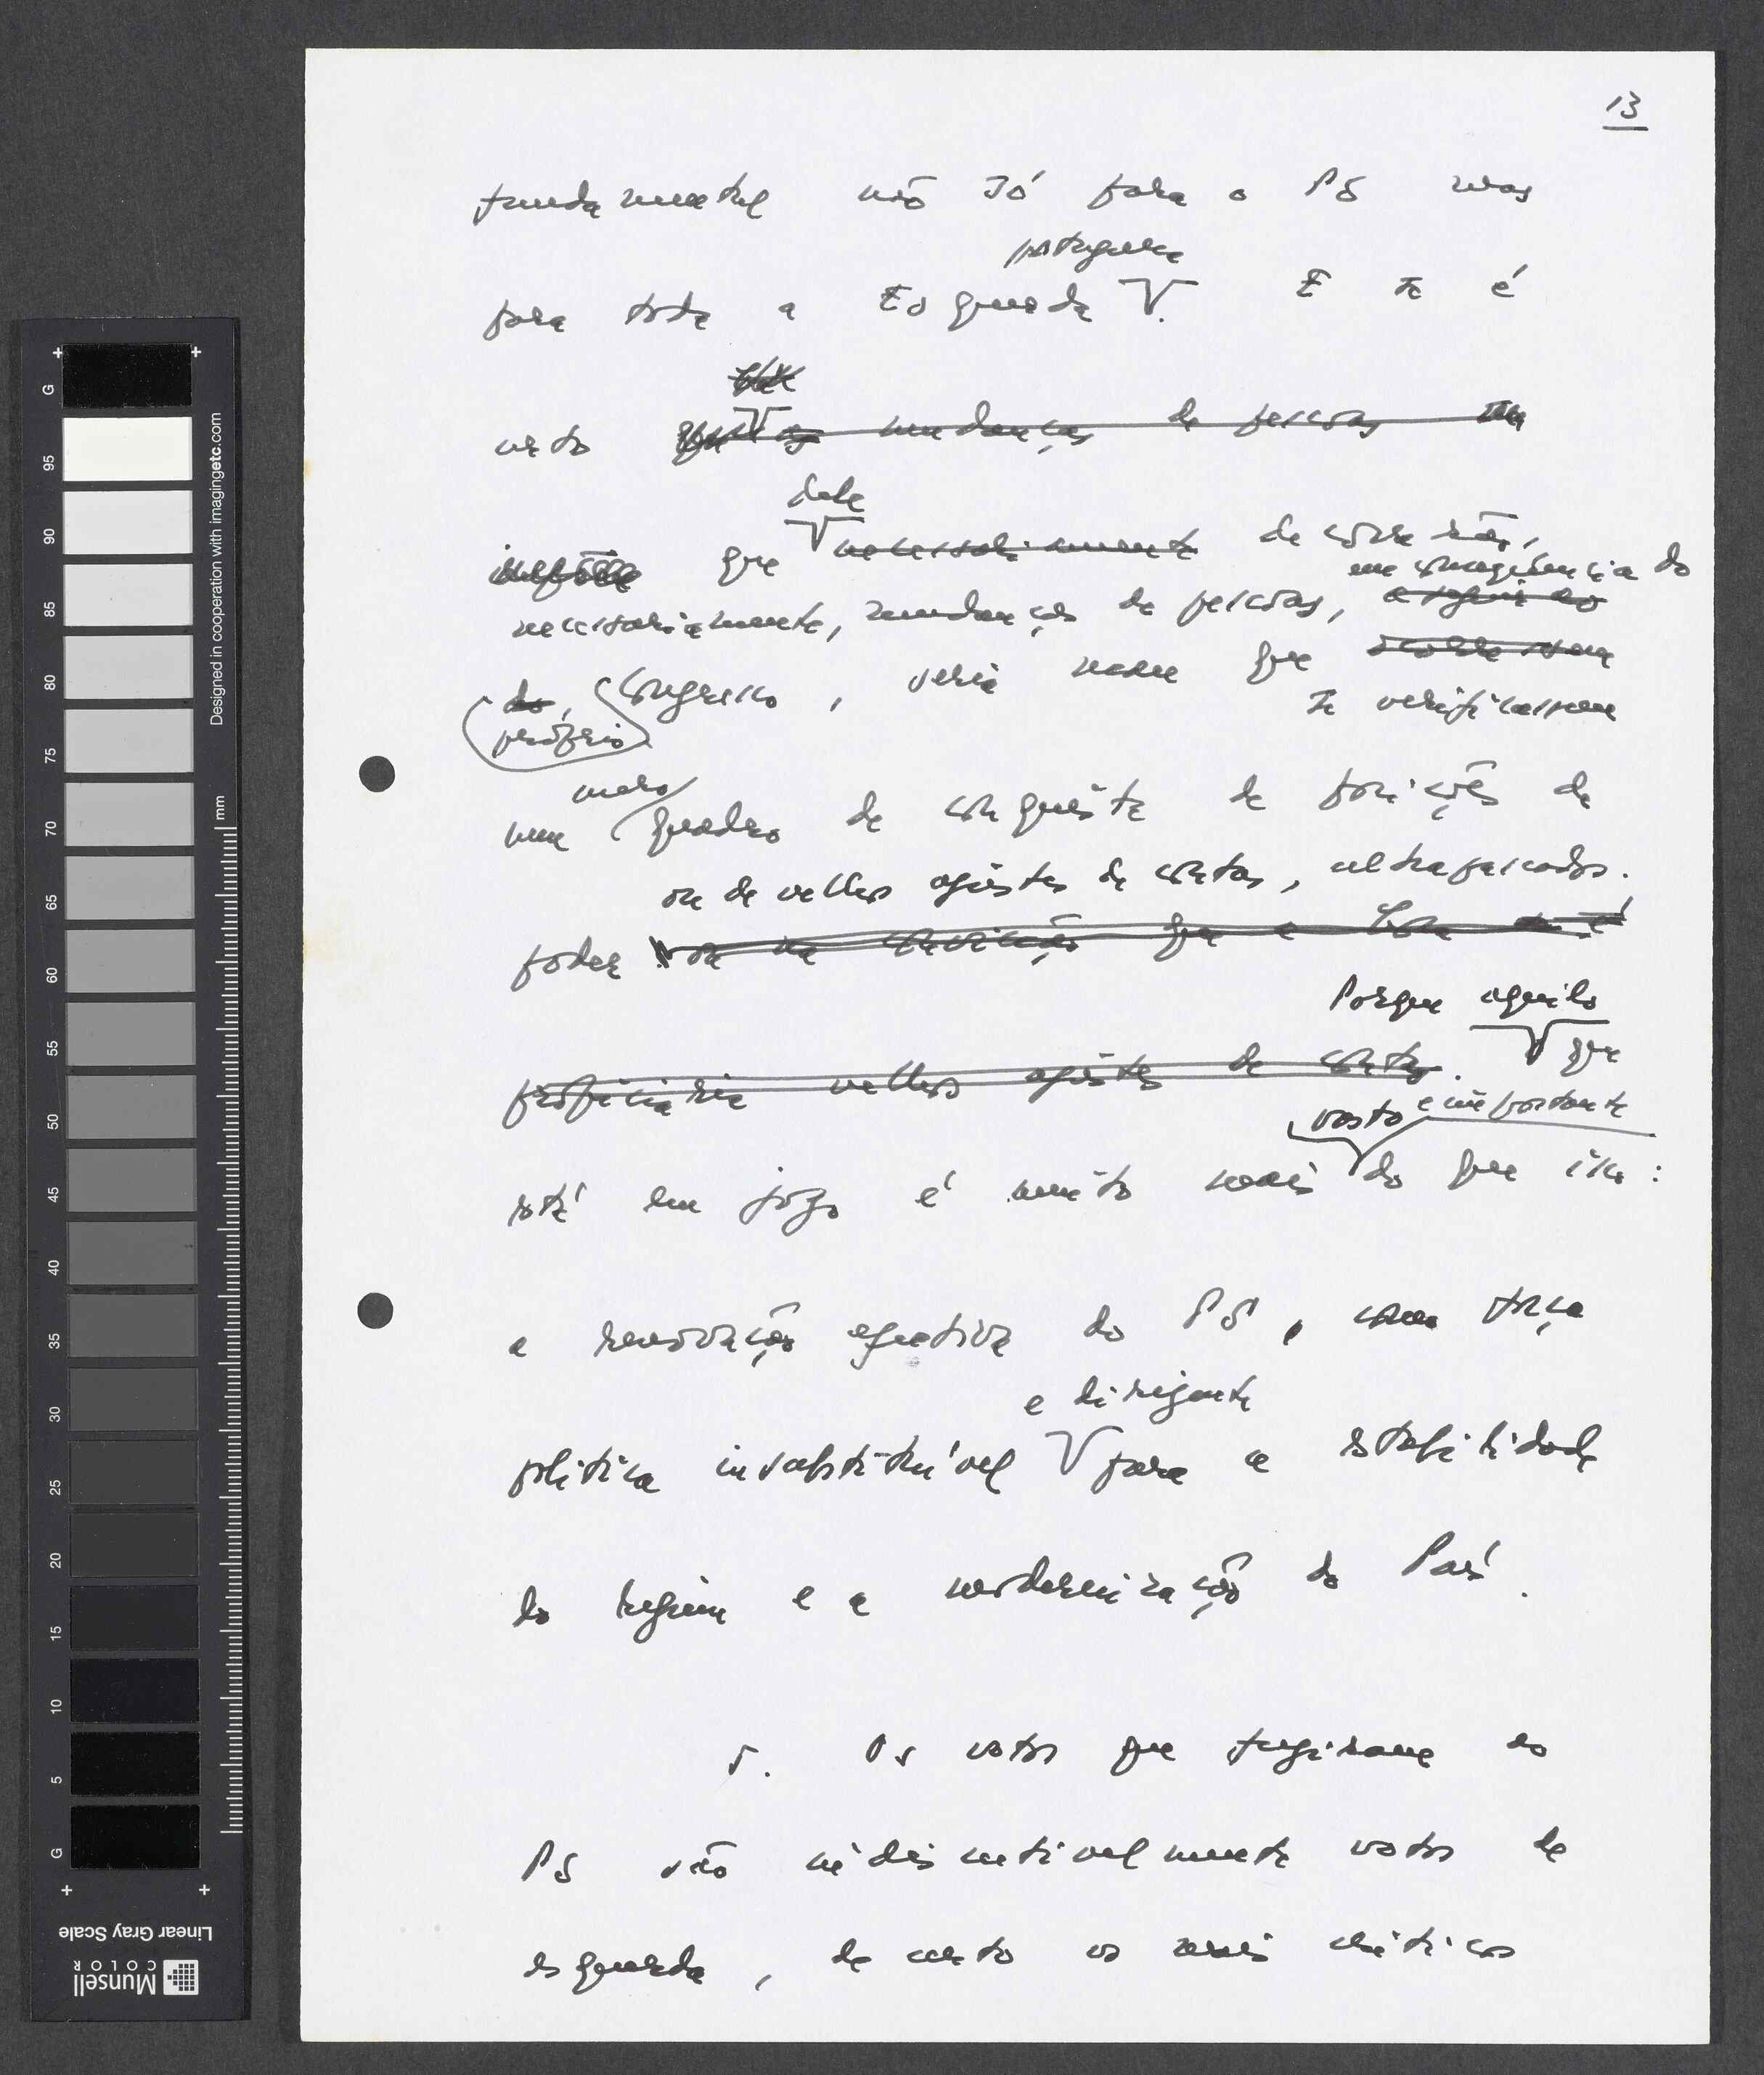 13
fundamental não só para o PS mas
portuguesa
para toda a Esquerda. E se é
certo mudanças de pessoas
dele
que necessariamente decorrerão,
em consequência do
necessariamente, mudanças de pessoas,
do, Congresso, seria mau que
próprio
se verificassem
mero
num quadro de conquista de posições de
ou de velhos ajustes de contas, ultrapassados.
poder ou na convicção que a
Porque aquilo
propiciaria velhos ajustes de contas. que
vasto e importante
está em jogo é muito mais do que isso:
a renovação efectiva do PS, como força
e dirigente
política insubstituível para a estabilidade
do regime e a modernização do País.
5. Os votos que fugiram ao
PS são indiscutivelmente votos de
esquerda, de certo os mais críticos
G 95 90 85 80 75 70 65 60 55 50 45 40 35 30 25 20 15 10 5 G
mm
Designed in cooperation with imagingetc.com
Linear Gray Scale
Munsell
COLOR